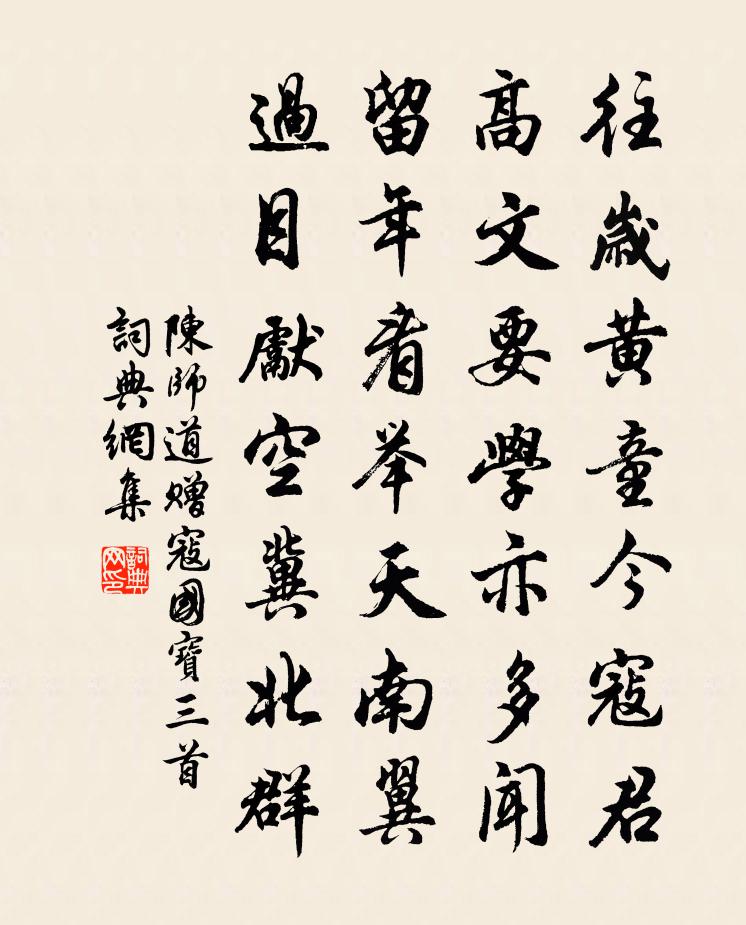 往歲黄童今寇君
高文要學亦多聞
留年看举天南翼
過目獻空冀北群
陳師道贈寇國寶三首
詞典網集
詞典
网印